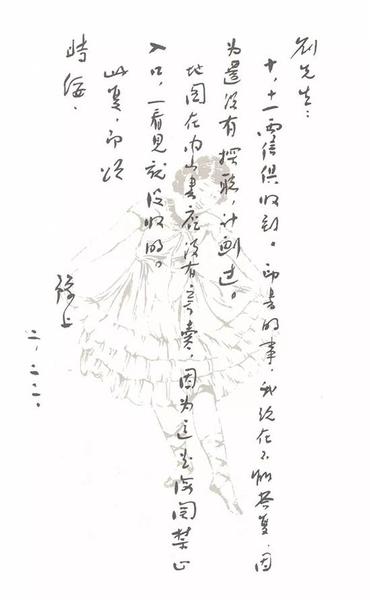 刘先生：
十，十一两信俱收到。印书的事，我现在不能答复，因
为還没有探聽，计劃过。
地图在内山書店没有寄賣，因为这是海関禁止
入口，一看见就没收的。
此复，即颂
時绥．
豫上
二．二二．